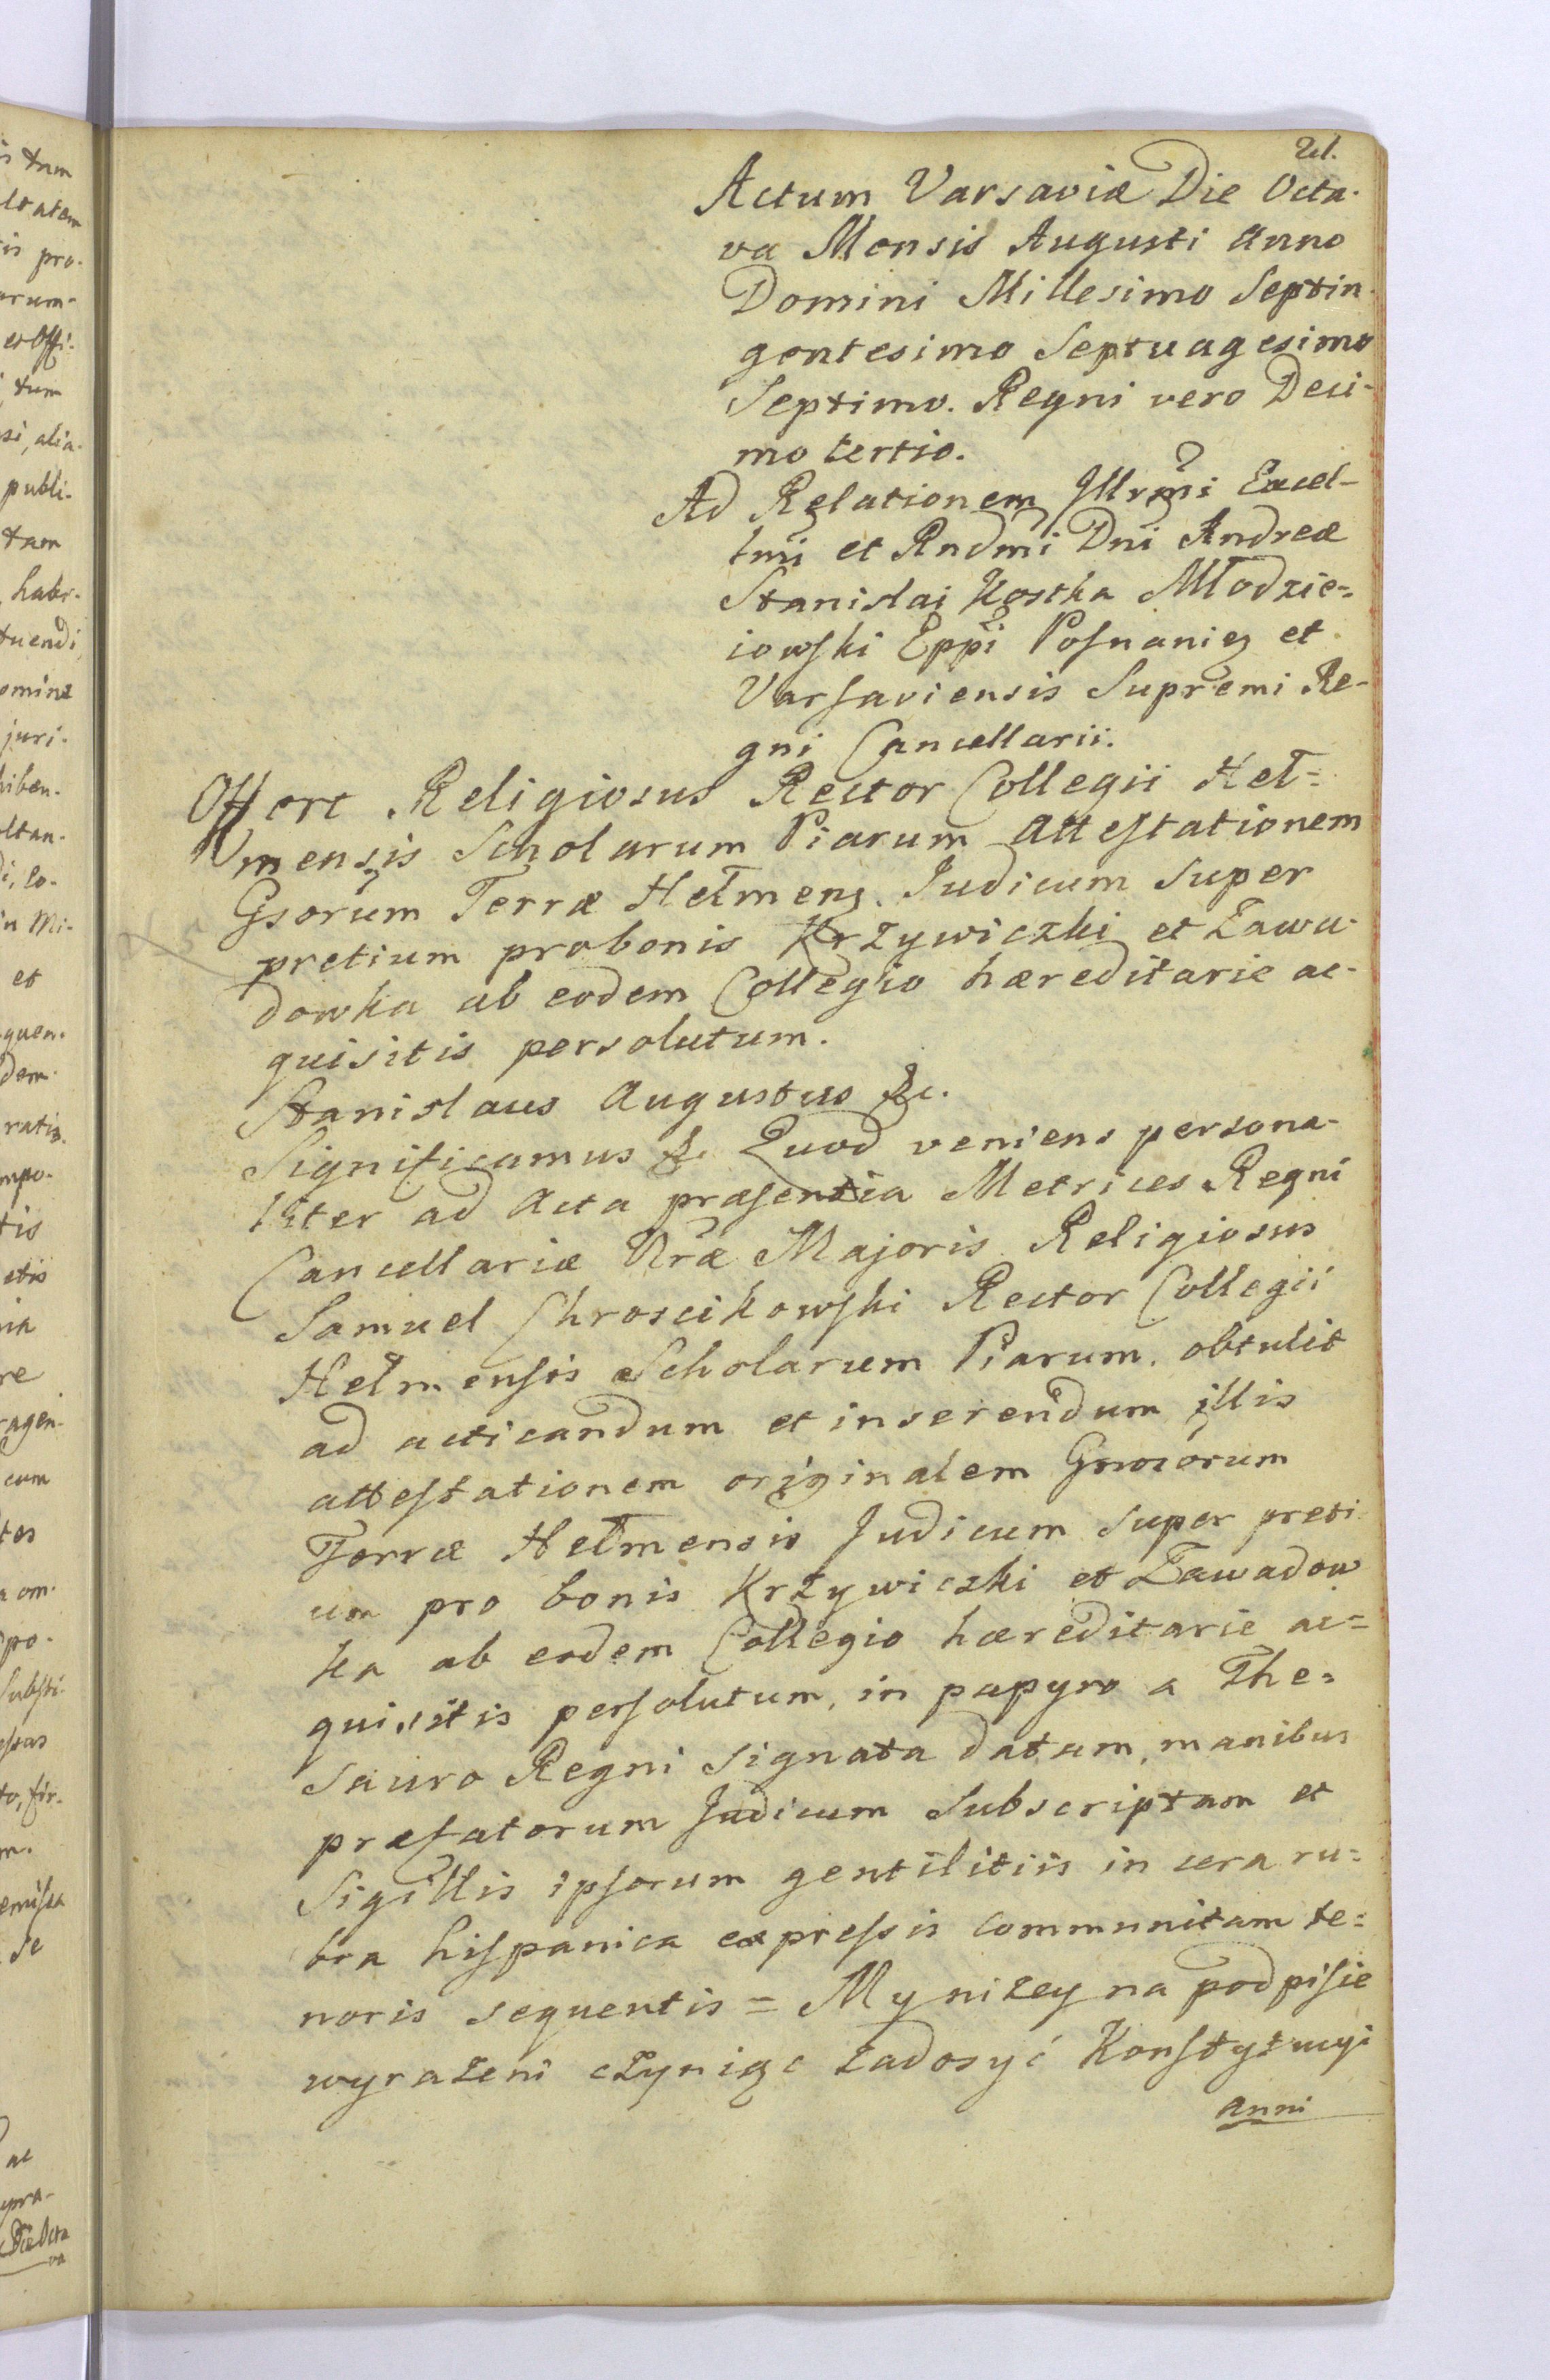 21.
Actum Varsaviæ Die Octa-
va Mensis Augusti Anno
Domini Millesimo Septin-
gentesimo Septuagesimo
Septimo. Regni vero Deci-
mo tertio.
Ad Relationem Illrmi Excel-
lmi et Rndmi Dni Andreæ
Stanislai Kostka Młodzie=
iowski Eppi Posnanien et
Varsaviensis Supremi Re-
gni Cancellarii.
Offert Religiosus Rector Collegii Heł=
mensis Scholarum Piarum Attestationem
Gsorum Terræ Hełmens. Judicum Super
pretium probonis Krzywiczki et Zawa-
dowka ab eodem Collegio hæreditarie ac-
quisitis persolutum.
Stanislaus Augustus &c.
Significamus &c. Quod veniens persona-
liter ad Acta præsentia Metrices Regni
Cancellariæ Nræ Majoris Religiosus
Samuel Chroscikowski Rector Collegii
Hełmensis Scholarum Piarum, obtulit
ad acticandum et inserendum illis
attestationem originalem Gnrosorum
Terræ Hełmensis Judicum Super preti
um pro bonis Krzywiczki et Zawadow
ka ab eodem Collegio hæreditarie ac=
quisitis persolutum, in papyro a The=
sauro Regni Signata datam, manibus
præfatorum Judicum Subscriptam et
Sigillis ipsorum gentilitiis in cera ru=
bra hispanica expressis communitam te=
noris sequentis = My niżey na podpisie
wyrażeni czyniąc zadosyć Konstytucyi
anni